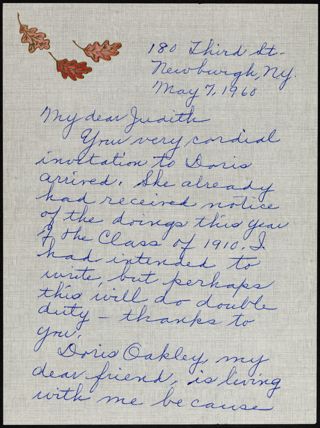 180 Third St.
Newburgh, N.Y.
May 7, 1960
My dear Judith
Your very cordial
invitation to Doris
arrived. She already
had received notice
of the doings this year
of the Class of 1910. I
had intended to
write, but perhaps
this will do double
duty – thanks to
you.
Doris Oakley, my
dear friend, is living
with me because